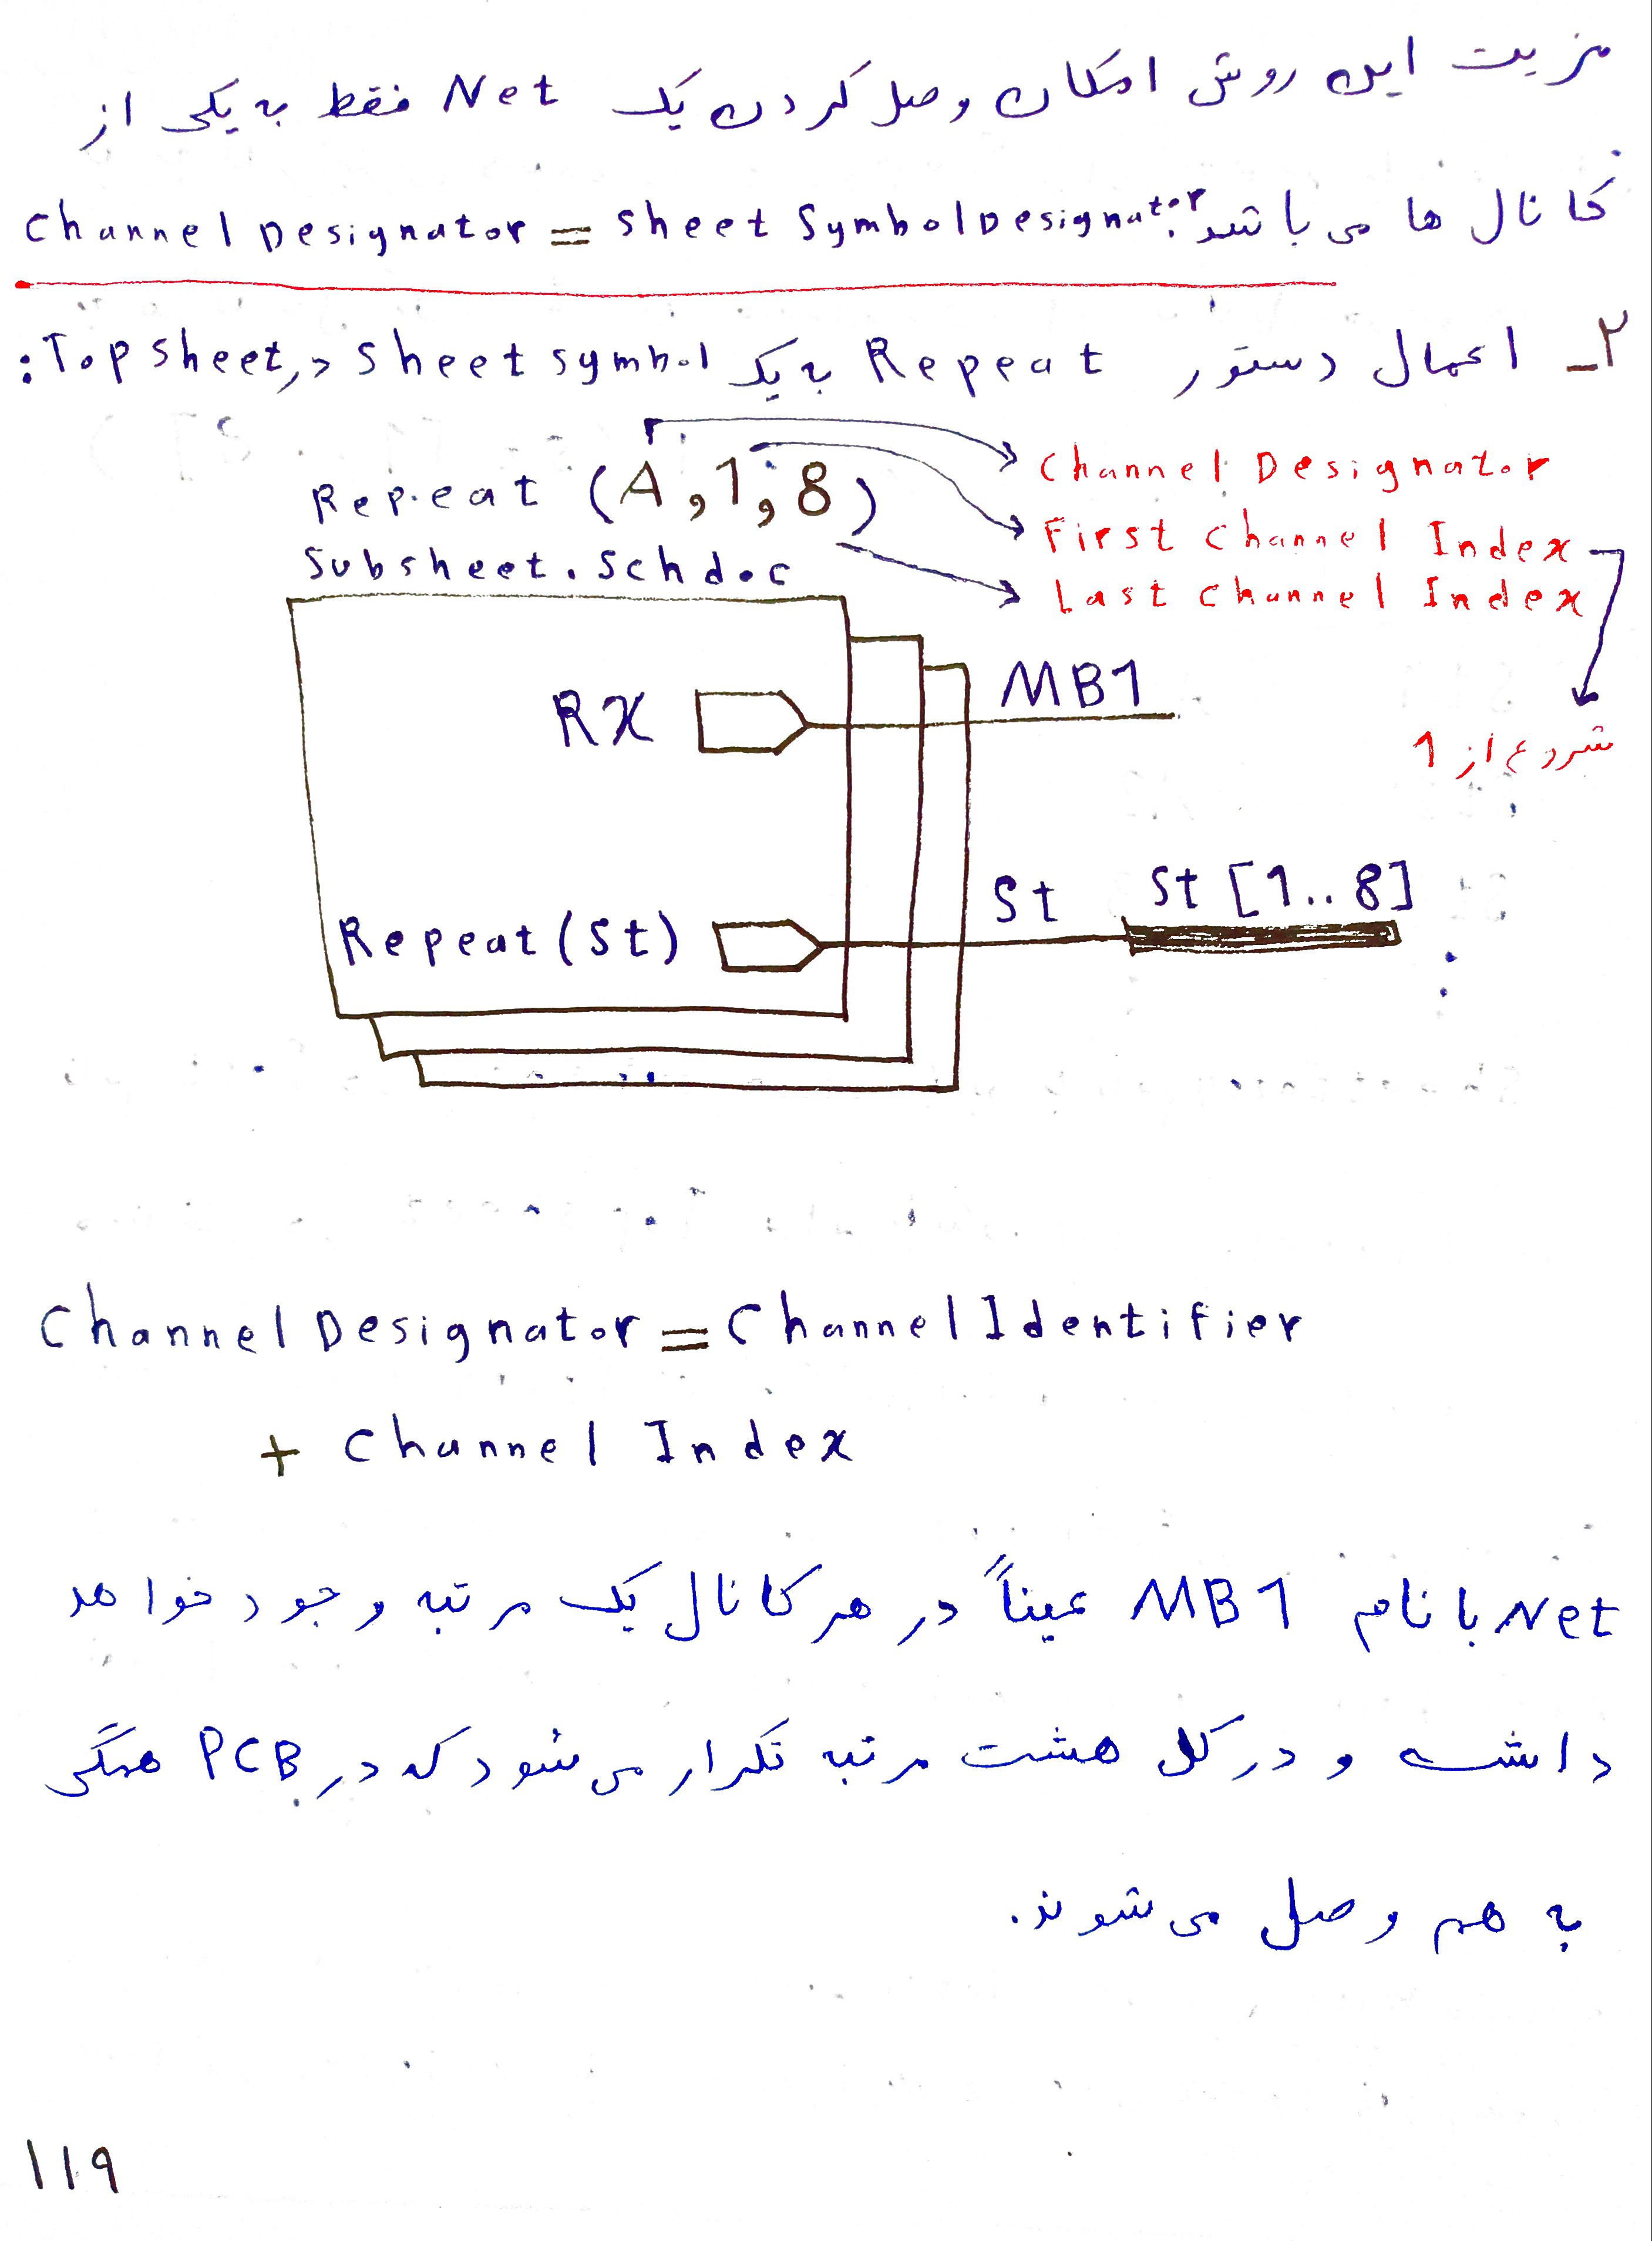 مزیت این روش امکان وصل کردن یک Net فقط به یکی از
کانال ها می باشد. Channel Designator = Sheet Symbol Designator
۲_ اعمال دستور Repeat به یک Sheet symbol در Top sheet:
Repeat (A,1,8)
Subsheet.Schdoc
Channel Designator
First Channel Index
Last Channel Index
شروع از 1
RX
MB1
Repeat(St)
St
St [1..8]
Channel Designator = Channel Identifier
+ Channel Index
Net با نام MB1 عیناً در هر کانال یک مرتبه وجود خواهد
داشت و در کل هشت مرتبه تکرار می شود که در PCB همگی
به هم وصل می شوند.
۱۱۹